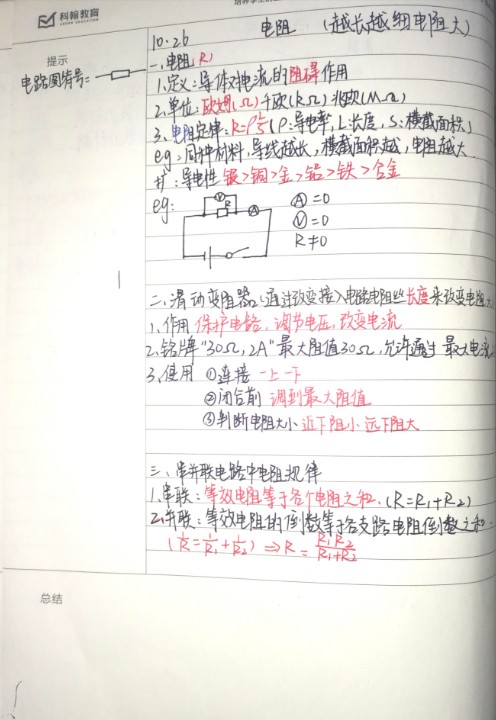 科翰教育
10.26 电阻 (越长越细电阻大)
提示
电路图符号=
一、电阻(R)
1.定义:导体对电流的阻碍作用
2.单位:欧姆(Ω)千欧(KΩ)兆欧(MΩ)
3、电阻定律:R=ρL/S(ρ:导电率,L:长度,S:横截面积)
eg:同种材料,导线越长,横截面积越,电阻越大.
扩:导电性 银>铜>金>铝>铁>合金
eg:
V
R
A
A=0
V=0
R≠0
二、滑动变阻器(通过改变接入电路电阻丝长度来改变电阻
1、作用 保护电路,调节电压,改变电流
2、铭牌"30Ω,2A"最大阻值30Ω,允许通过最大电流
3、使用 ①连接 一上一下
②闭合前 调到最大阻值
③判断电阻大小 近下阻小 远下阻大
三、串并联电路中电阻规律
1.串联:等效电阻等于各个电阻之和.(R=R1+R2)
2.并联:等效电阻的倒数等于各支路电阻倒数之和:
(1/R=1/R1+1/R2)⇒R=R1R2/R1+R2
总结